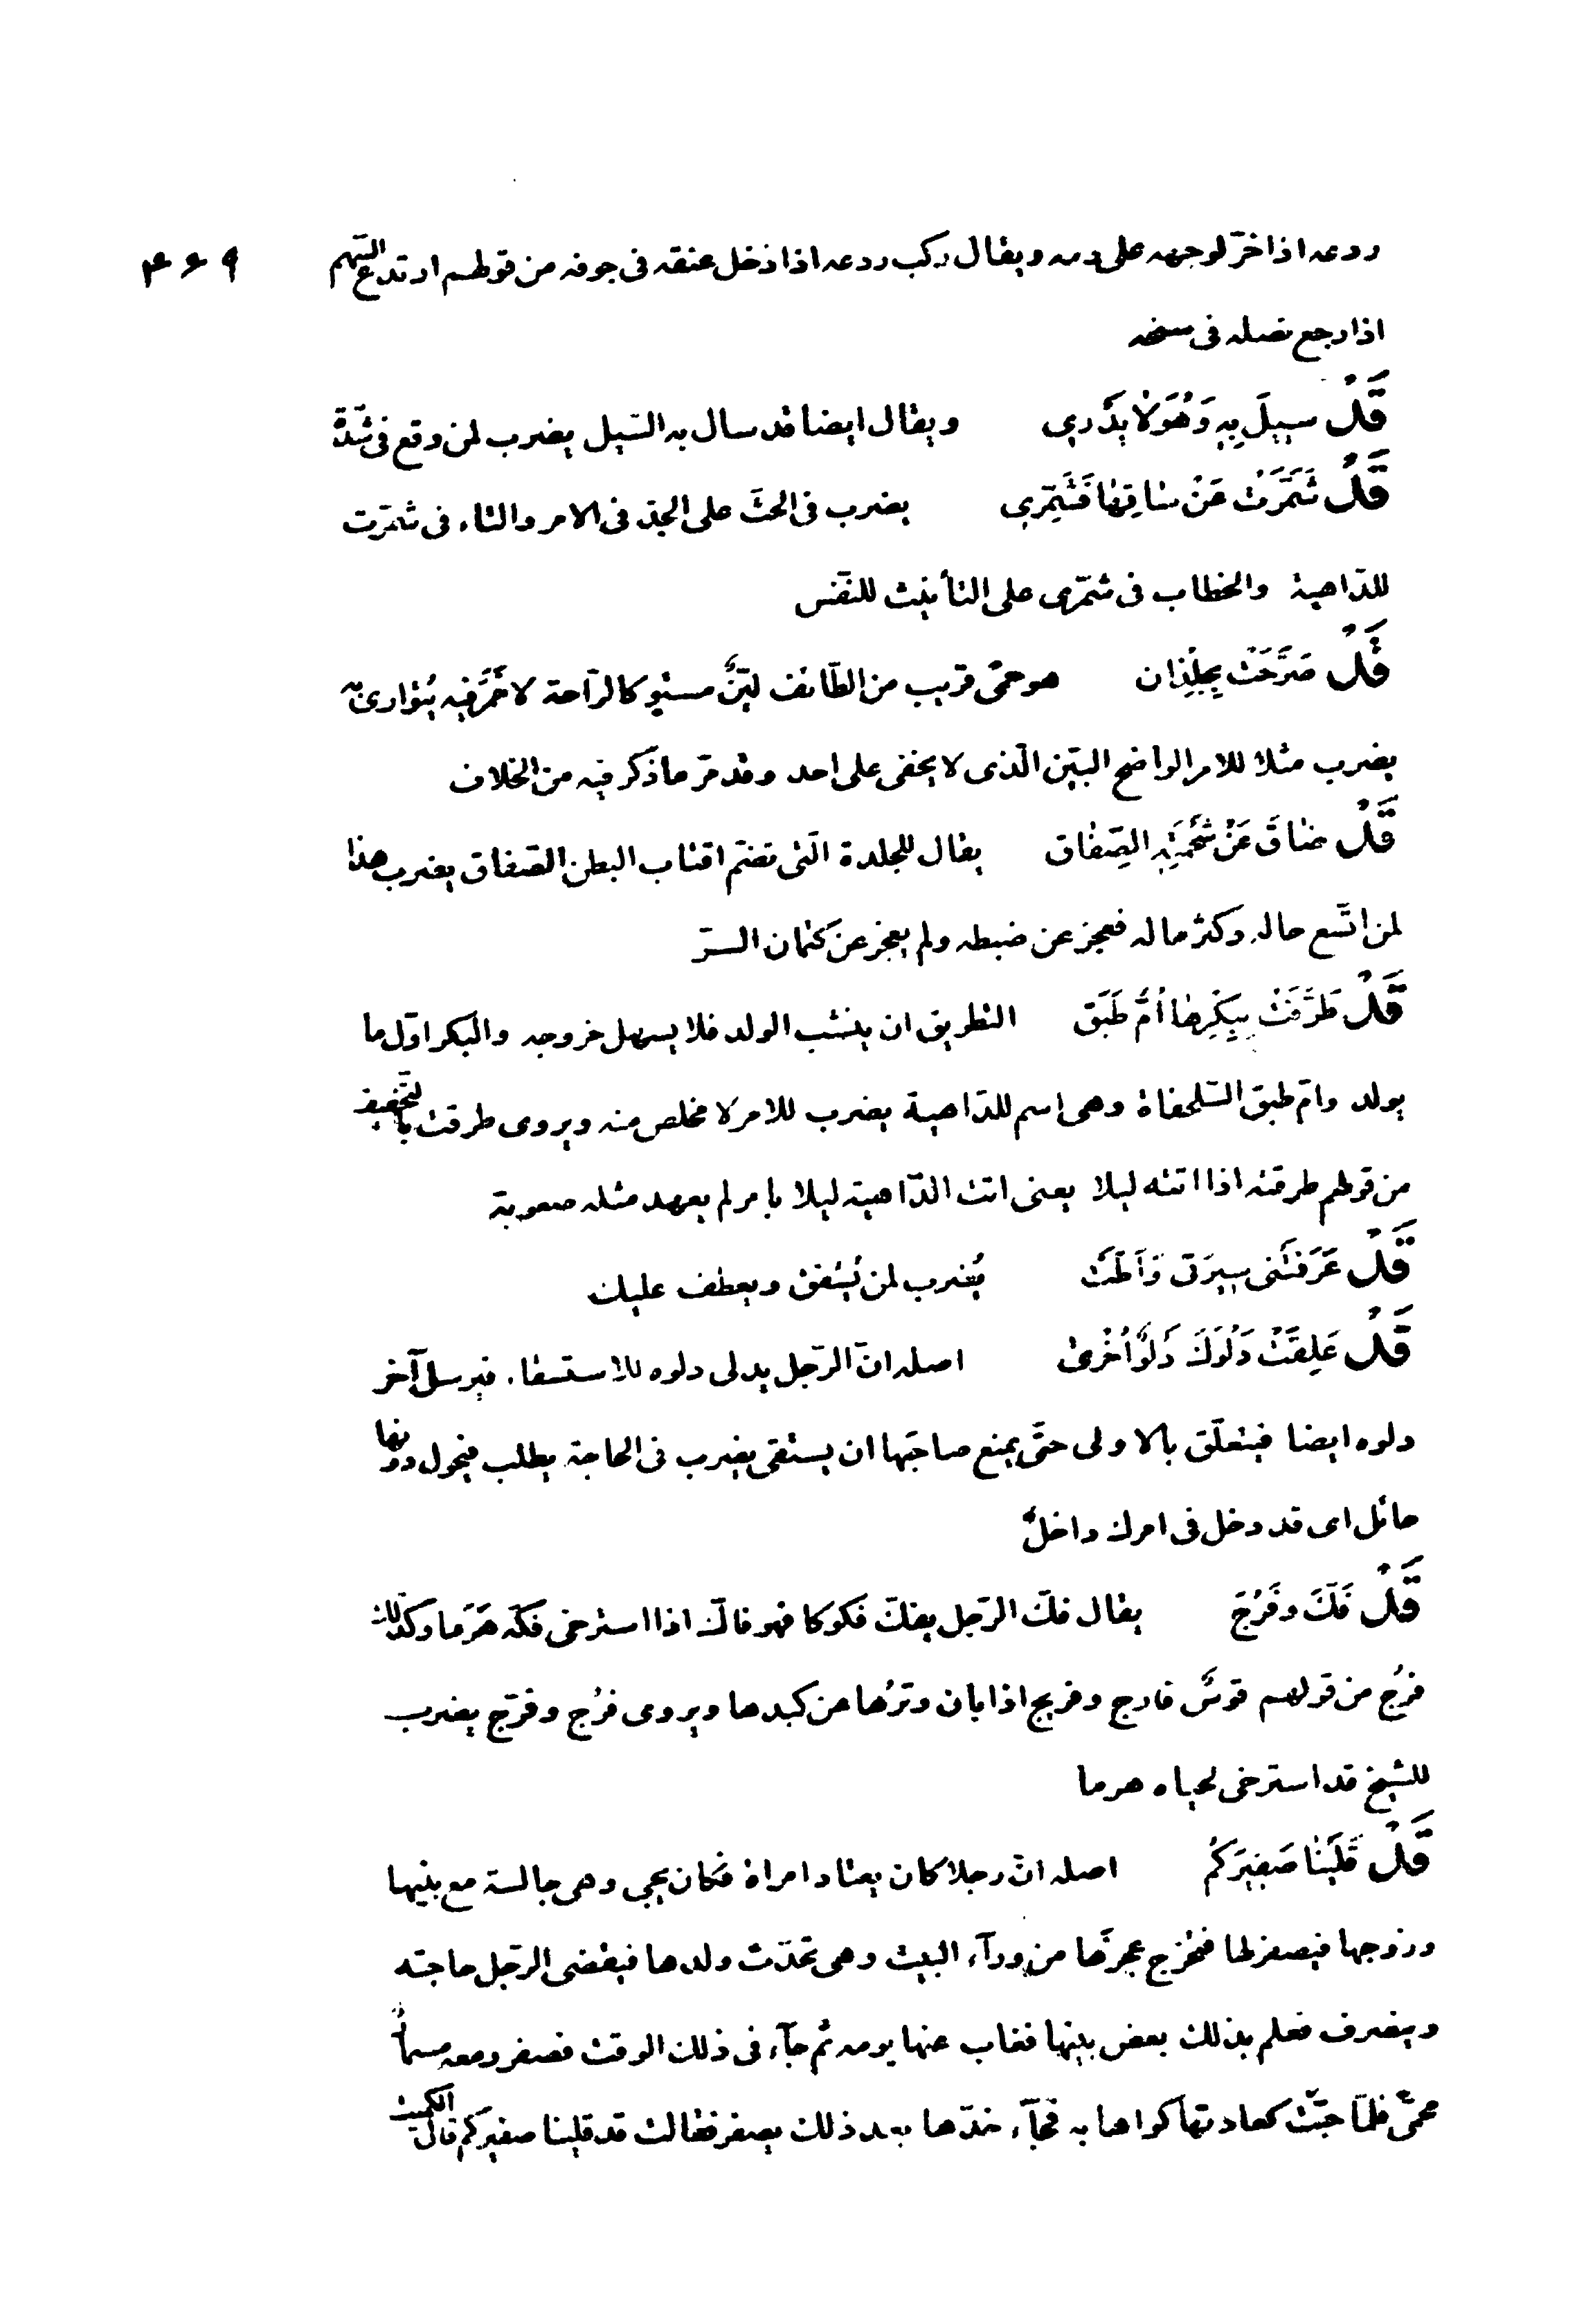 ردعه اذا خرّ لوجهه على دمه ويقال ركب ردعه اذا دخل عنقه فى جوفه من قولهم ارتدع السّهم ٤٦٩
اذا رجع نصله فى سنخه
قَدْ سِيلَ بِهِ وَهُوَ لا يَدْرِي ويقال ايضا قد سال به السّيل يضرب لمن وقع فى شدّة
قَدْ شَمَّرَتْ عَنْ ساقِها فَشَمِّرِي يضرب فى الحثّ على الجدّ فى الامر والتاء فى شمّرت
للدّاهية والخطاب فى شمّرى على التأنيث للنّفس
قَدْ صَرَّحَتْ بِجِلْذان هو حمى قريب من الطّائف ليّنٌ مستوٍ كالرّاحة لا خَمَرَ فيه يُتوارى به
يضرب مثلا للامر الواضح البيّن الّذى لا يخفى على احد وقد مرّ ما ذكر فيه من الخلاف
قَدْ ضاقَ عَنْ شَحْمَتِهِ الصِّفاق يقال للجلدة الّتى تضمّ اقتاب البطن الصّفاق يضرب هذا
لمن اتّسع حاله وكثر ماله فعجز عن ضبطه ولم يعجز عن كتمان السرّ
قَدْ طَرَّقَتْ بِبِكْرِها اُمُّ طَبَق التّطريق ان ينشب الولد فلا يسهل خروجه والبكر اوّل ما
يولد وامّ طبق السّلحفاة وهى اسم للدّاهية يضرب للامر لا مخلص منه ويروى طرقت بالتّخفيف
من قولهم طرقته اذا اتته ليلا يعنى اتت الدّاهية ليلا بامر لم يعهد مثله صعوبة
قَدْ عَرَفَتْنى سِيرَتى وَاَطَّتْ يُضرب لمن يُشفق ويعطف عليك
قَدْ عَلِقَتْ دَلْوَكَ دَلْوٌ اُخْرى اصله انّ الرّجل يدلى دلوه للاستسقاء فيرسل آخر
دلوه ايضا فيتعلّق بالاولى حتّى يمنع صاحبها ان يستقى يضرب فى الحاجة يطلب فيحول دونها
حائل اى قد دخل فى امرك داخلٌ
قَدْ فَكَّ وفَرُجَ يقال فكّ الرّجل يفكّ فكوكا فهو فاكّ اذا استرخى فكّه هَرَما وكذلك
فرُج من قولهم قوسٌ فارج وفريج اذا بان وترُها عن كبدها ويروى فرُج وفرّج يضرب
للشيخ قد استرخى لحياه هرما
قَدْ قَلَيْنا صَفيرَكُمْ اصله انّ رجلا كان يعتاد امراة فكان يجى وهى جالسة مع بنيها
وزوجها فيصفر لها فتخرج عجزَها من ورآء البيت وهى تحدّث ولدها فيقضى الرّجل حاجته
وينصرف فعلم بذلك بعض بنيها فغاب عنها يومه ثم جآء فى ذلك الوقت فصفر ومعه مسمارٌ
محمىّ فلمّا جئت كعادتها كواها به فجآء خدّها بعد ذلك يصفر فقالت قد قلينا صفيركم قال الكميت